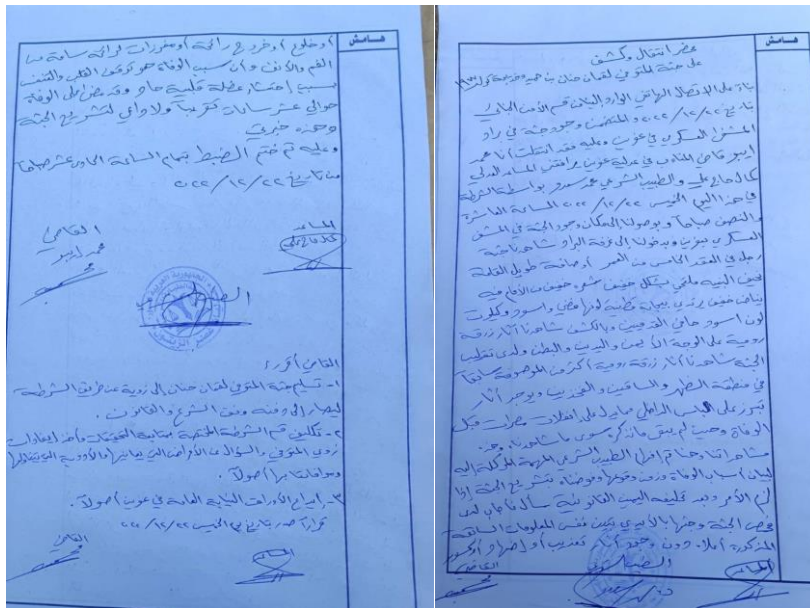 هامش
محضر انتقال وكشف
على جثة المتوفي لقمان حنان بن حميد وخديجة تولد
بناء على الاتصال الهاتفي الوارد إلينا من قسم الأمن الجنائي
بتاريخ ٢٠٢٢/١٢/٢٢ والمتضمن وجود جثة في براد
المشفى العسكري في عفرين وعليه فقد انتقلت أنا محمد
قاضي في عدلية عفرين يرافقني المساعد العدلي
كمال حاج علي والطبيب الشرعي بواسطة الشرطة
في هذا اليوم الخميس ٢٠٢٢/١٢/٢٢ الساعة العاشرة
والنصف صباحاً وبوصولنا إلى مكان وجود الجثة في المشفى
العسكري بعفرين وبدخولنا إلى غرفة البراد شاهدنا جثة
رجل في العقد الخامس من العمر أوصافه طويل القامة
نحيف البنية ملتحي بشكل خفيف شعره خفيف من الأمام فيه
بياض خفيف يرتدي بيجامة قطنية لونها فضي وأسود وكلوت
لون أسود حافي القدمين وبالكشف شاهدنا آثار زرقة
رمية على الوجه الأيمن واليدين والبطن ولدى تقليب
الجثة شاهدنا آثار زرقة رمية أكثر من الموصوفة سابقاً
في منطقة الظهر والساقين والفخذين ويوجد آثار
تبرز على اللباس الداخلي مما يدل على انفلات مصرات قبل
الوفاة وحيث لم يبق ما نذكره سوى ما شاهدناه وهذه
مشاهداتنا وهنا تم إفهام الطبيب الشرعي المهمة الموكلة إليه
لبيان أسباب الوفاة وزمن وقوعها وفوضناه بتشريح الجثة إذا
لزم الأمر وبعد تحليفه اليمين القانونية سأل فأجاب لدى
فحص الجثة وجسها بالأيدي تبين نفس المعلومات السابقة
المذكورة أعلاه دون وجود آثار تعذيب أو
المساعد
القاضي
هامش
أو خلوع أو خروج رائحة أو مفرزات أو رائحة سامة من
الفم والأنف وأن سبب الوفاة هو توقف القلب والتنفس
بسبب احتشاء عضلة قلبية حاد وقد مضى على الوفاة
حوالي عشر ساعات تقريباً ولا داعي لتشريح الجثة
وهذه خبرتي
وعليه تم ختم الضبط بتمام الساعة الحادي عشر صباحاً
من تاريخ ٢٠٢٢/١٢/٢٢
المساعد
كمال حاج علي
القاضي
محمد
القاضي أقرر:
١- تسليم جثة المتوفي لقمان حنان إلى ذويه عن طريق الشرطة
ليصار إلى دفنه وفق الشرع والقانون.
٢- تكليف قسم الشرطة المختصة بمتابعة التحقيقات وأخذ إفادات
ذوي المتوفي والسؤال عن الأمراض التي يعانيها والأدوية التي يتناولها
وموافاتنا بها أصولاً.
٣- إيداع الأوراق النيابة العامة في عفرين أصولاً.
قراراً صدر بتاريخ الخميس ٢٠٢٢/١٢/٢٢
المساعد
القاضي